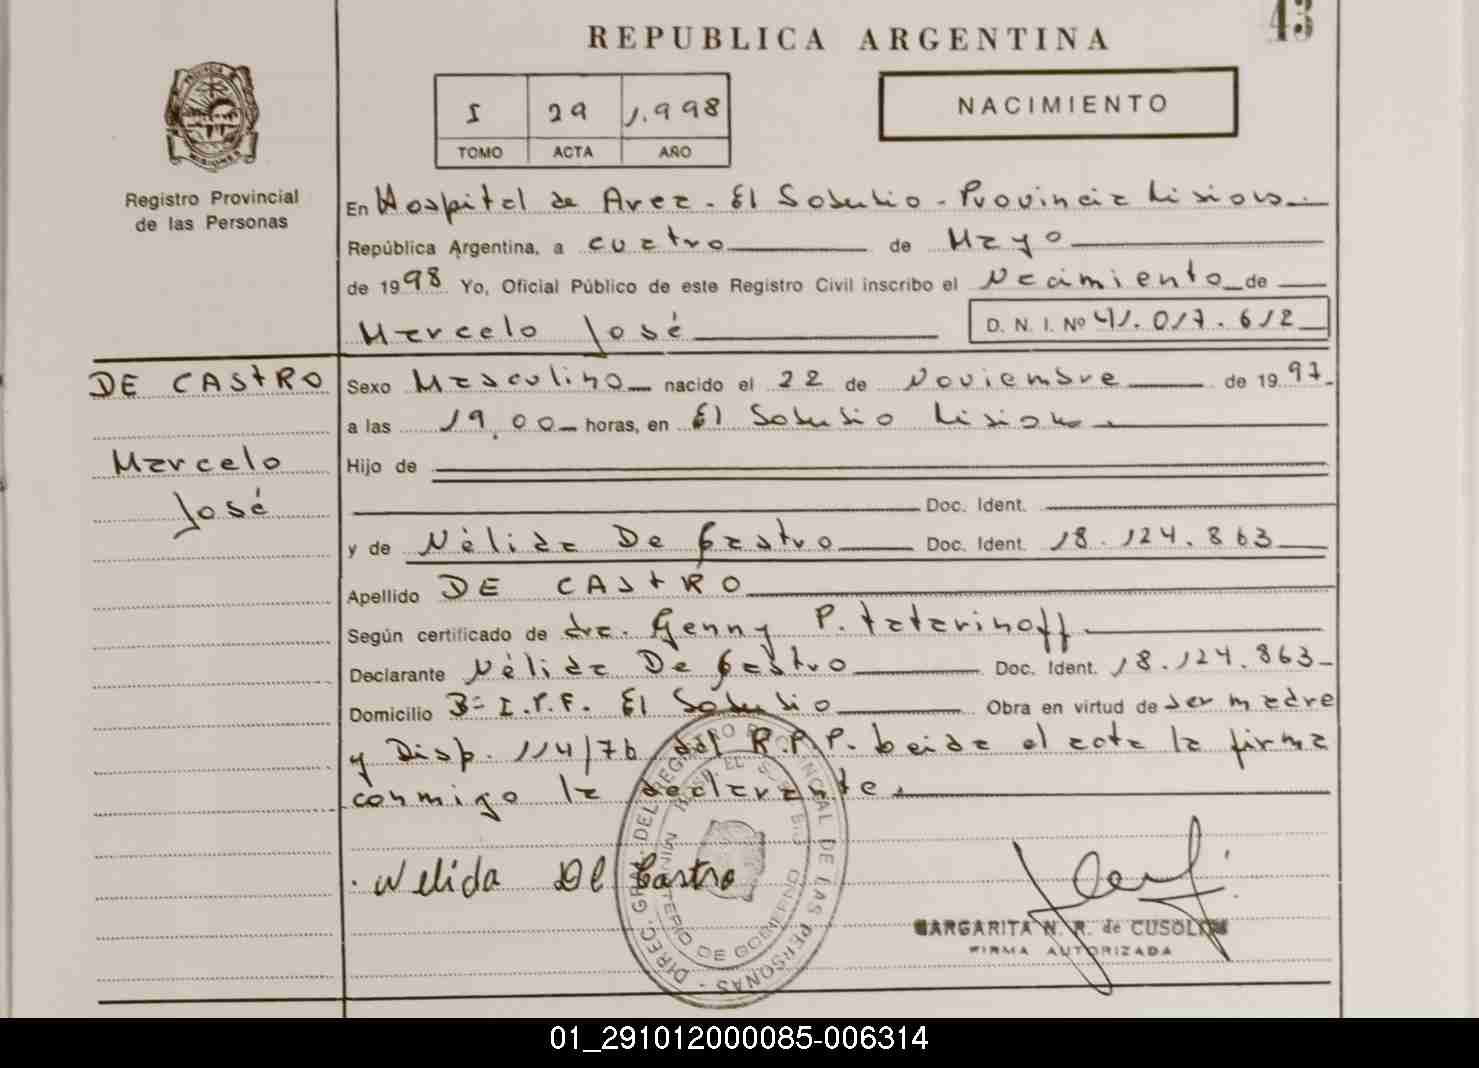 43
REPUBLICA ARGENTINA
I 29 1.998
TOMO ACTA AÑO
NACIMIENTO
PROVINCIA DE MISIONES
Registro Provincial
de las Personas
En Hospital de Area - El Soberbio - Provincia Misiones.
República Argentina, a cuatro de Mayo
de 1998 Yo, Oficial Público de este Registro Civil inscribo el Nacimiento de
Marcelo José D. N. I. Nº 41.017.612
DE CASTRO
Marcelo
José
Sexo Masculino nacido el 22 de Noviembre de 1997.
a las 19,00 horas, en El Soberbio Misiones.
Hijo de
Doc. Ident.
y de Nèlida De Castro Doc. Ident. 18.124.863
Apellido DE CASTRO
Según certificado de dra. Genny P. Tatarinoff
Declarante Nèlida De Castro Doc. Ident. 18.124.863
Domicilio 3= I.P.F. El Soberbio Obra en virtud de ser madre
y Disp. 114/76 del R.P.P. leida el acta la firma
conmigo la declarante.
Nelida De Castro
DIREC. GRAL. DEL REGISTRO PROVINCIAL DE LAS PERSONAS
MINISTERIO DE GOBIERNO
MARGARITA N. R. de CUSOLITO
FIRMA AUTORIZADA
01_291012000085-006314